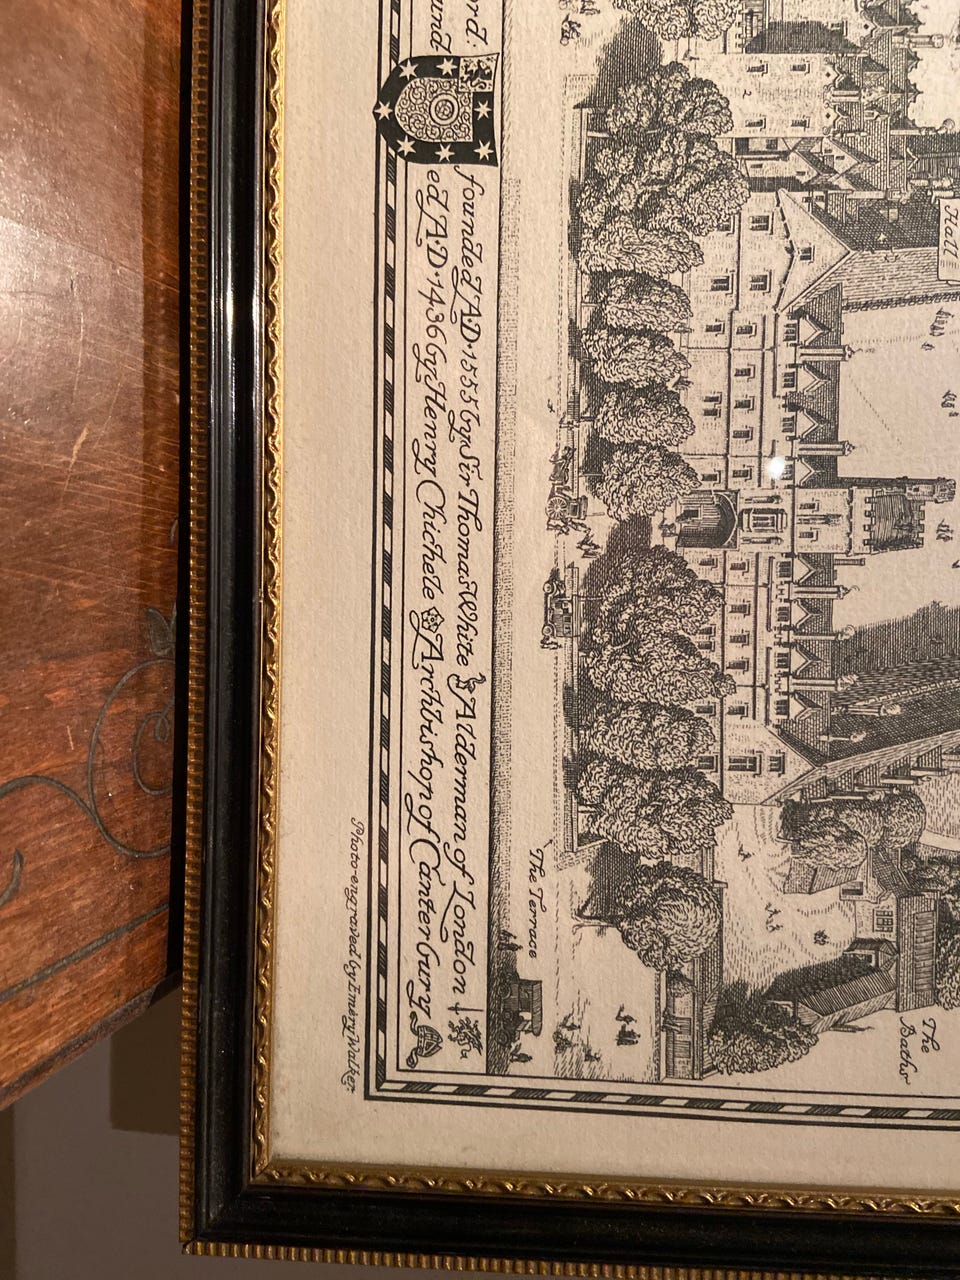 Hall
The Terrace
The
Baths
founded A.D. 1555 by Sir Thomas White Alderman of London
ed A.D. 1436 by Henry Chichele Archbishop of Canterbury
Photo-engraved by Emery Walker.